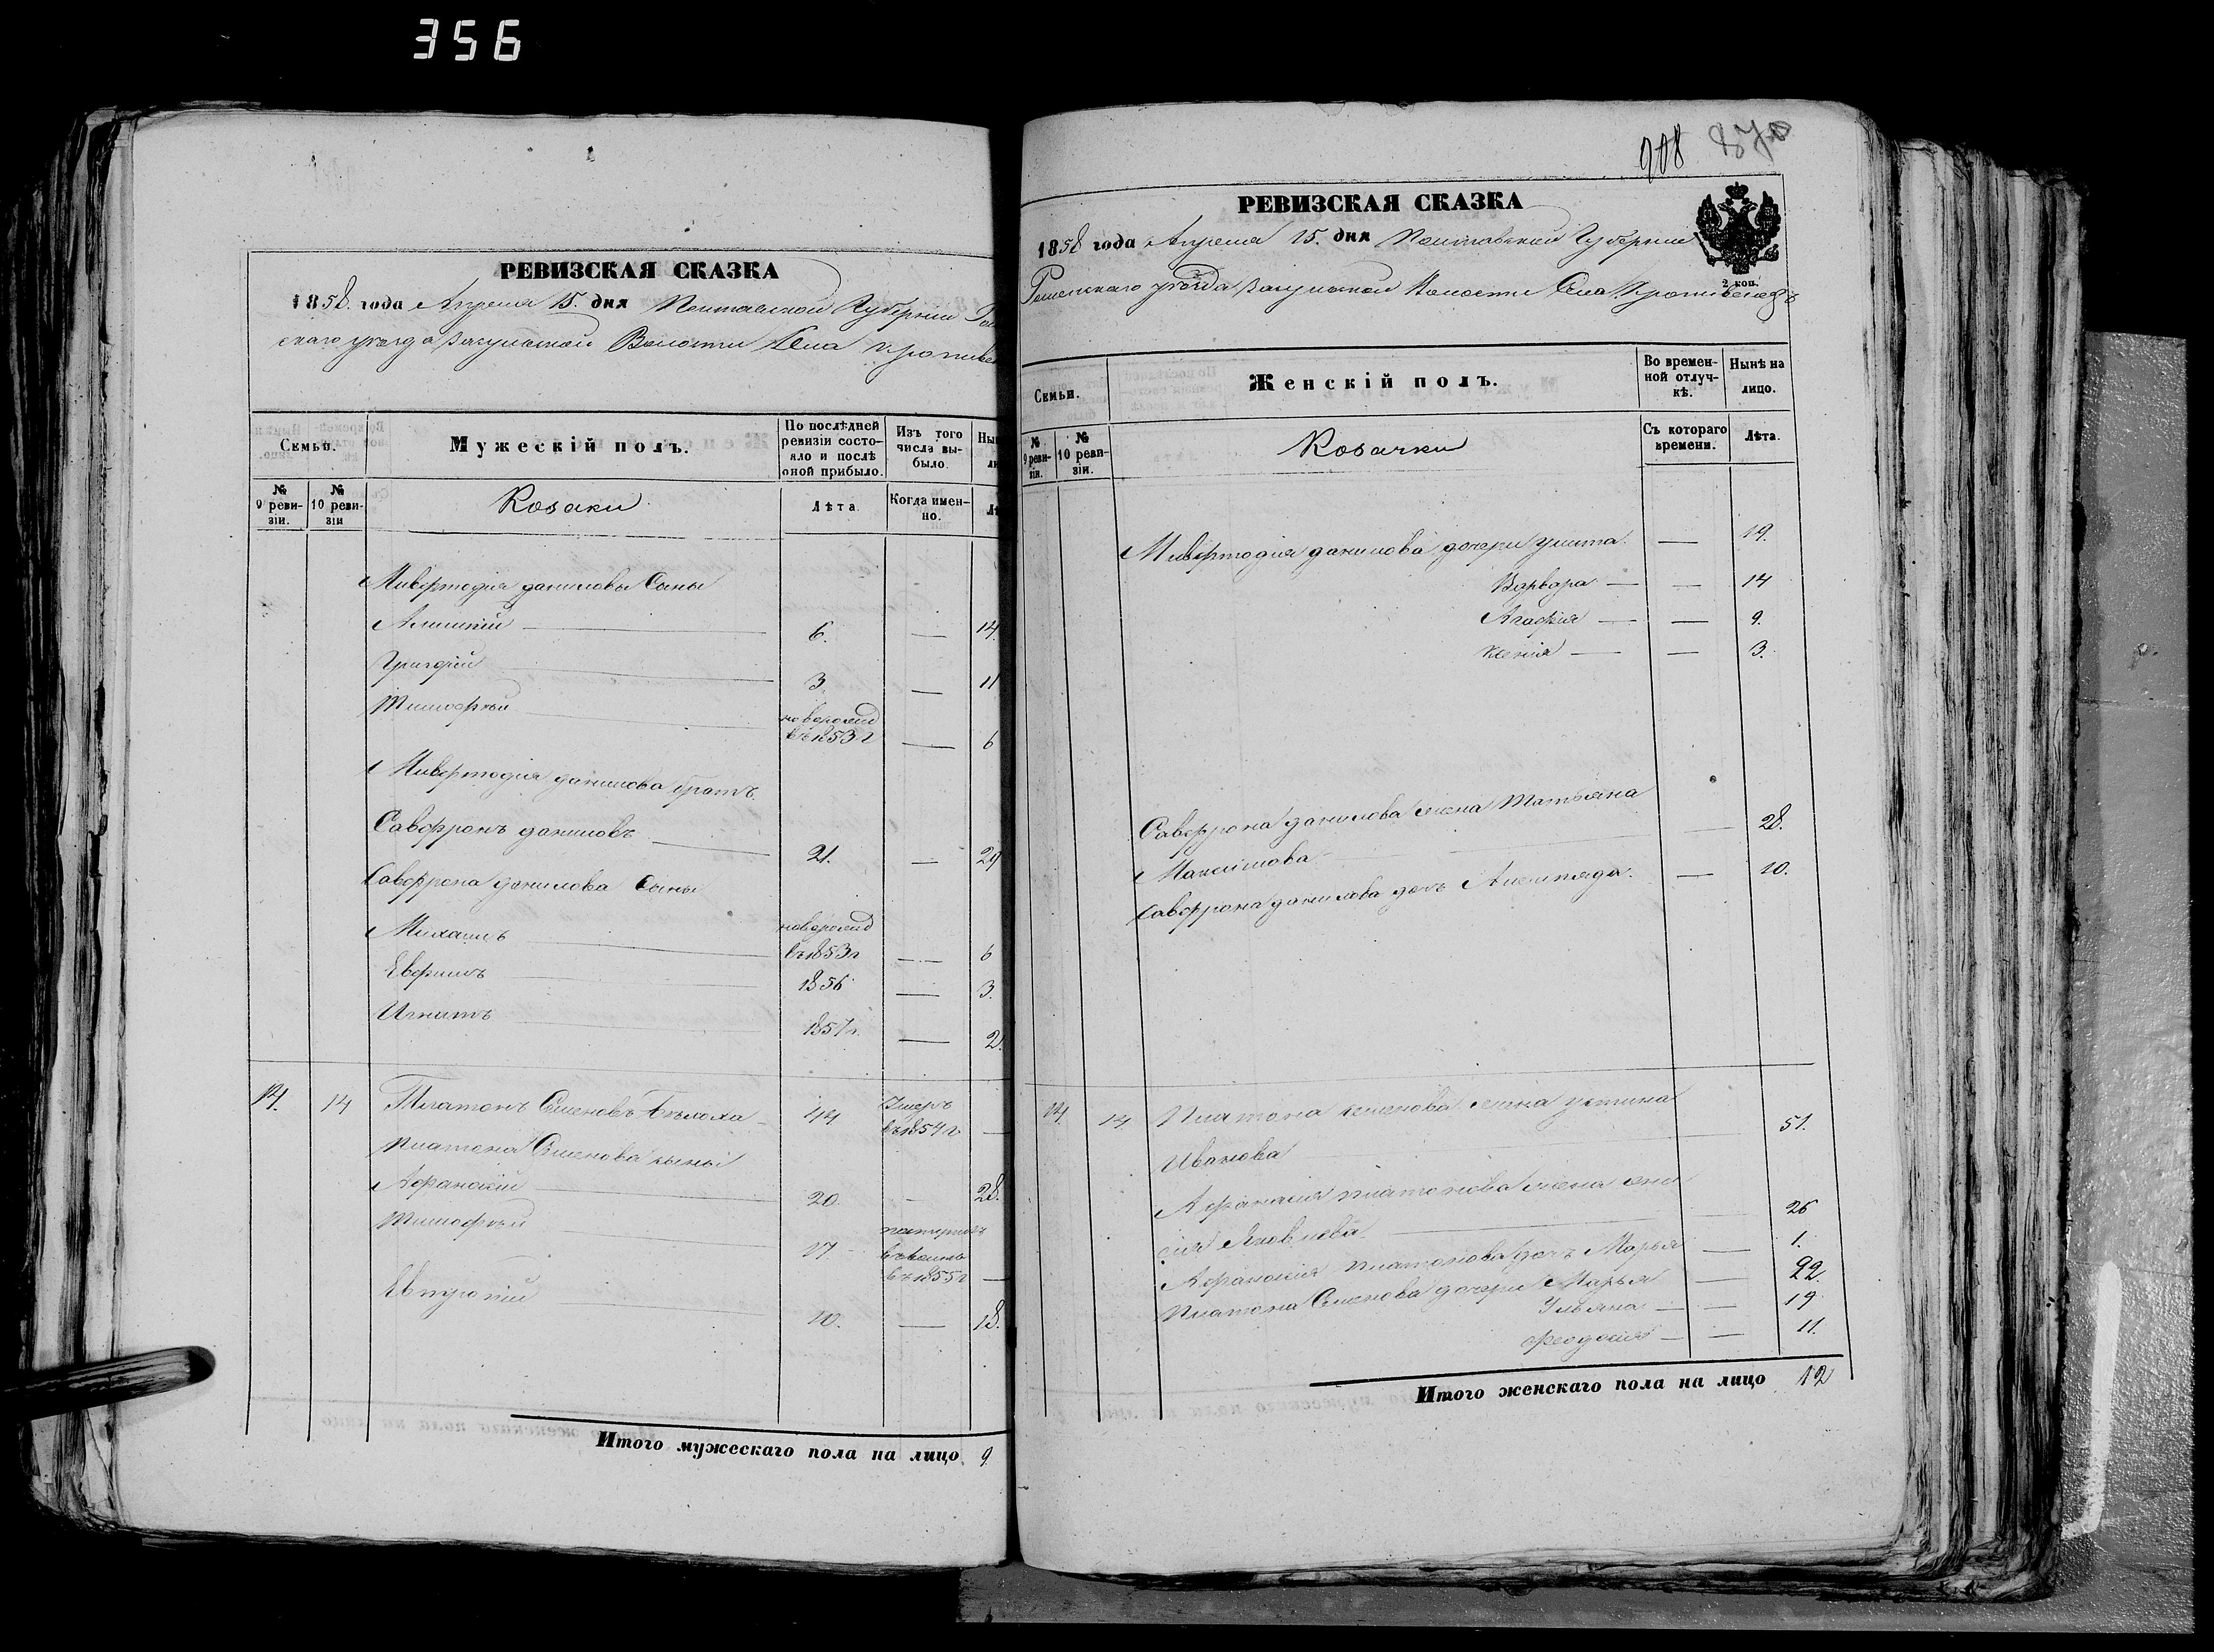 356
РЕВИЗСКАЯ СКАЗКА
1858. года Апреля 15. дня Полтавской Губернии Ро
скаго уезда Волости Села
Семьи.
Мужескій полъ.
По послѣдней ревизіи состояло и послѣ оной прибыло.
Изъ того числа выбыло.
№ 9 ревизіи.
№ 10 ревизіи
Козаки
Лѣта
Когда именно.
даниловы Сыны
6. — 14.
Григорій 3. — 11
Тимофѣй новорожд въ 1853 г — 6
данилова братъ
Савфронъ даниловъ 21. — 29
Савфрона данилова Сыны
Михаилъ новорожд въ 1853 г — 6
Евфимъ 1856 — 3.
Игнатъ 1857 г. — 2.
14. 14 Платонъ Семеновъ 44 Умеръ въ 1854 г —
Платона Семенова сыны
Афанасій 20. - 28.
Тимофѣй 17 въ 1855 г —
Евтропій 10. — 18.
Итого мужескаго пола на лицо 9.
908 870
РЕВИЗСКАЯ СКАЗКА
1858 года Апреля 15. дня Полтавской Губернии
Роменскаго уезда Волости Села
2 коп.
Семьи.
Женскій полъ.
Во временной отлучкѣ.
Нынѣ на лицо.
№ 9 ревизіи.
№ 10 ревизіи.
Козачки
Съ котораго времени.
Лѣта.
данилова дочери улита. — 19.
Варвара — — 14
Агафия — — 9.
Ксенія — — 3.
Савфрона данилова жена Татьяна
Максимова — 28.
Савфрона данилова дочь — 10.
14. 14. Платона семенова жена устина
Иванова 51.
Афанасия платонова жена
Яковлева — 26
Афанасия платонова дочь Марья — 1.
Платона Семенова дочери Марья — 22.
Ульяна — — 19
феодосия — — 11.
Итого женскаго пола на лицо 12